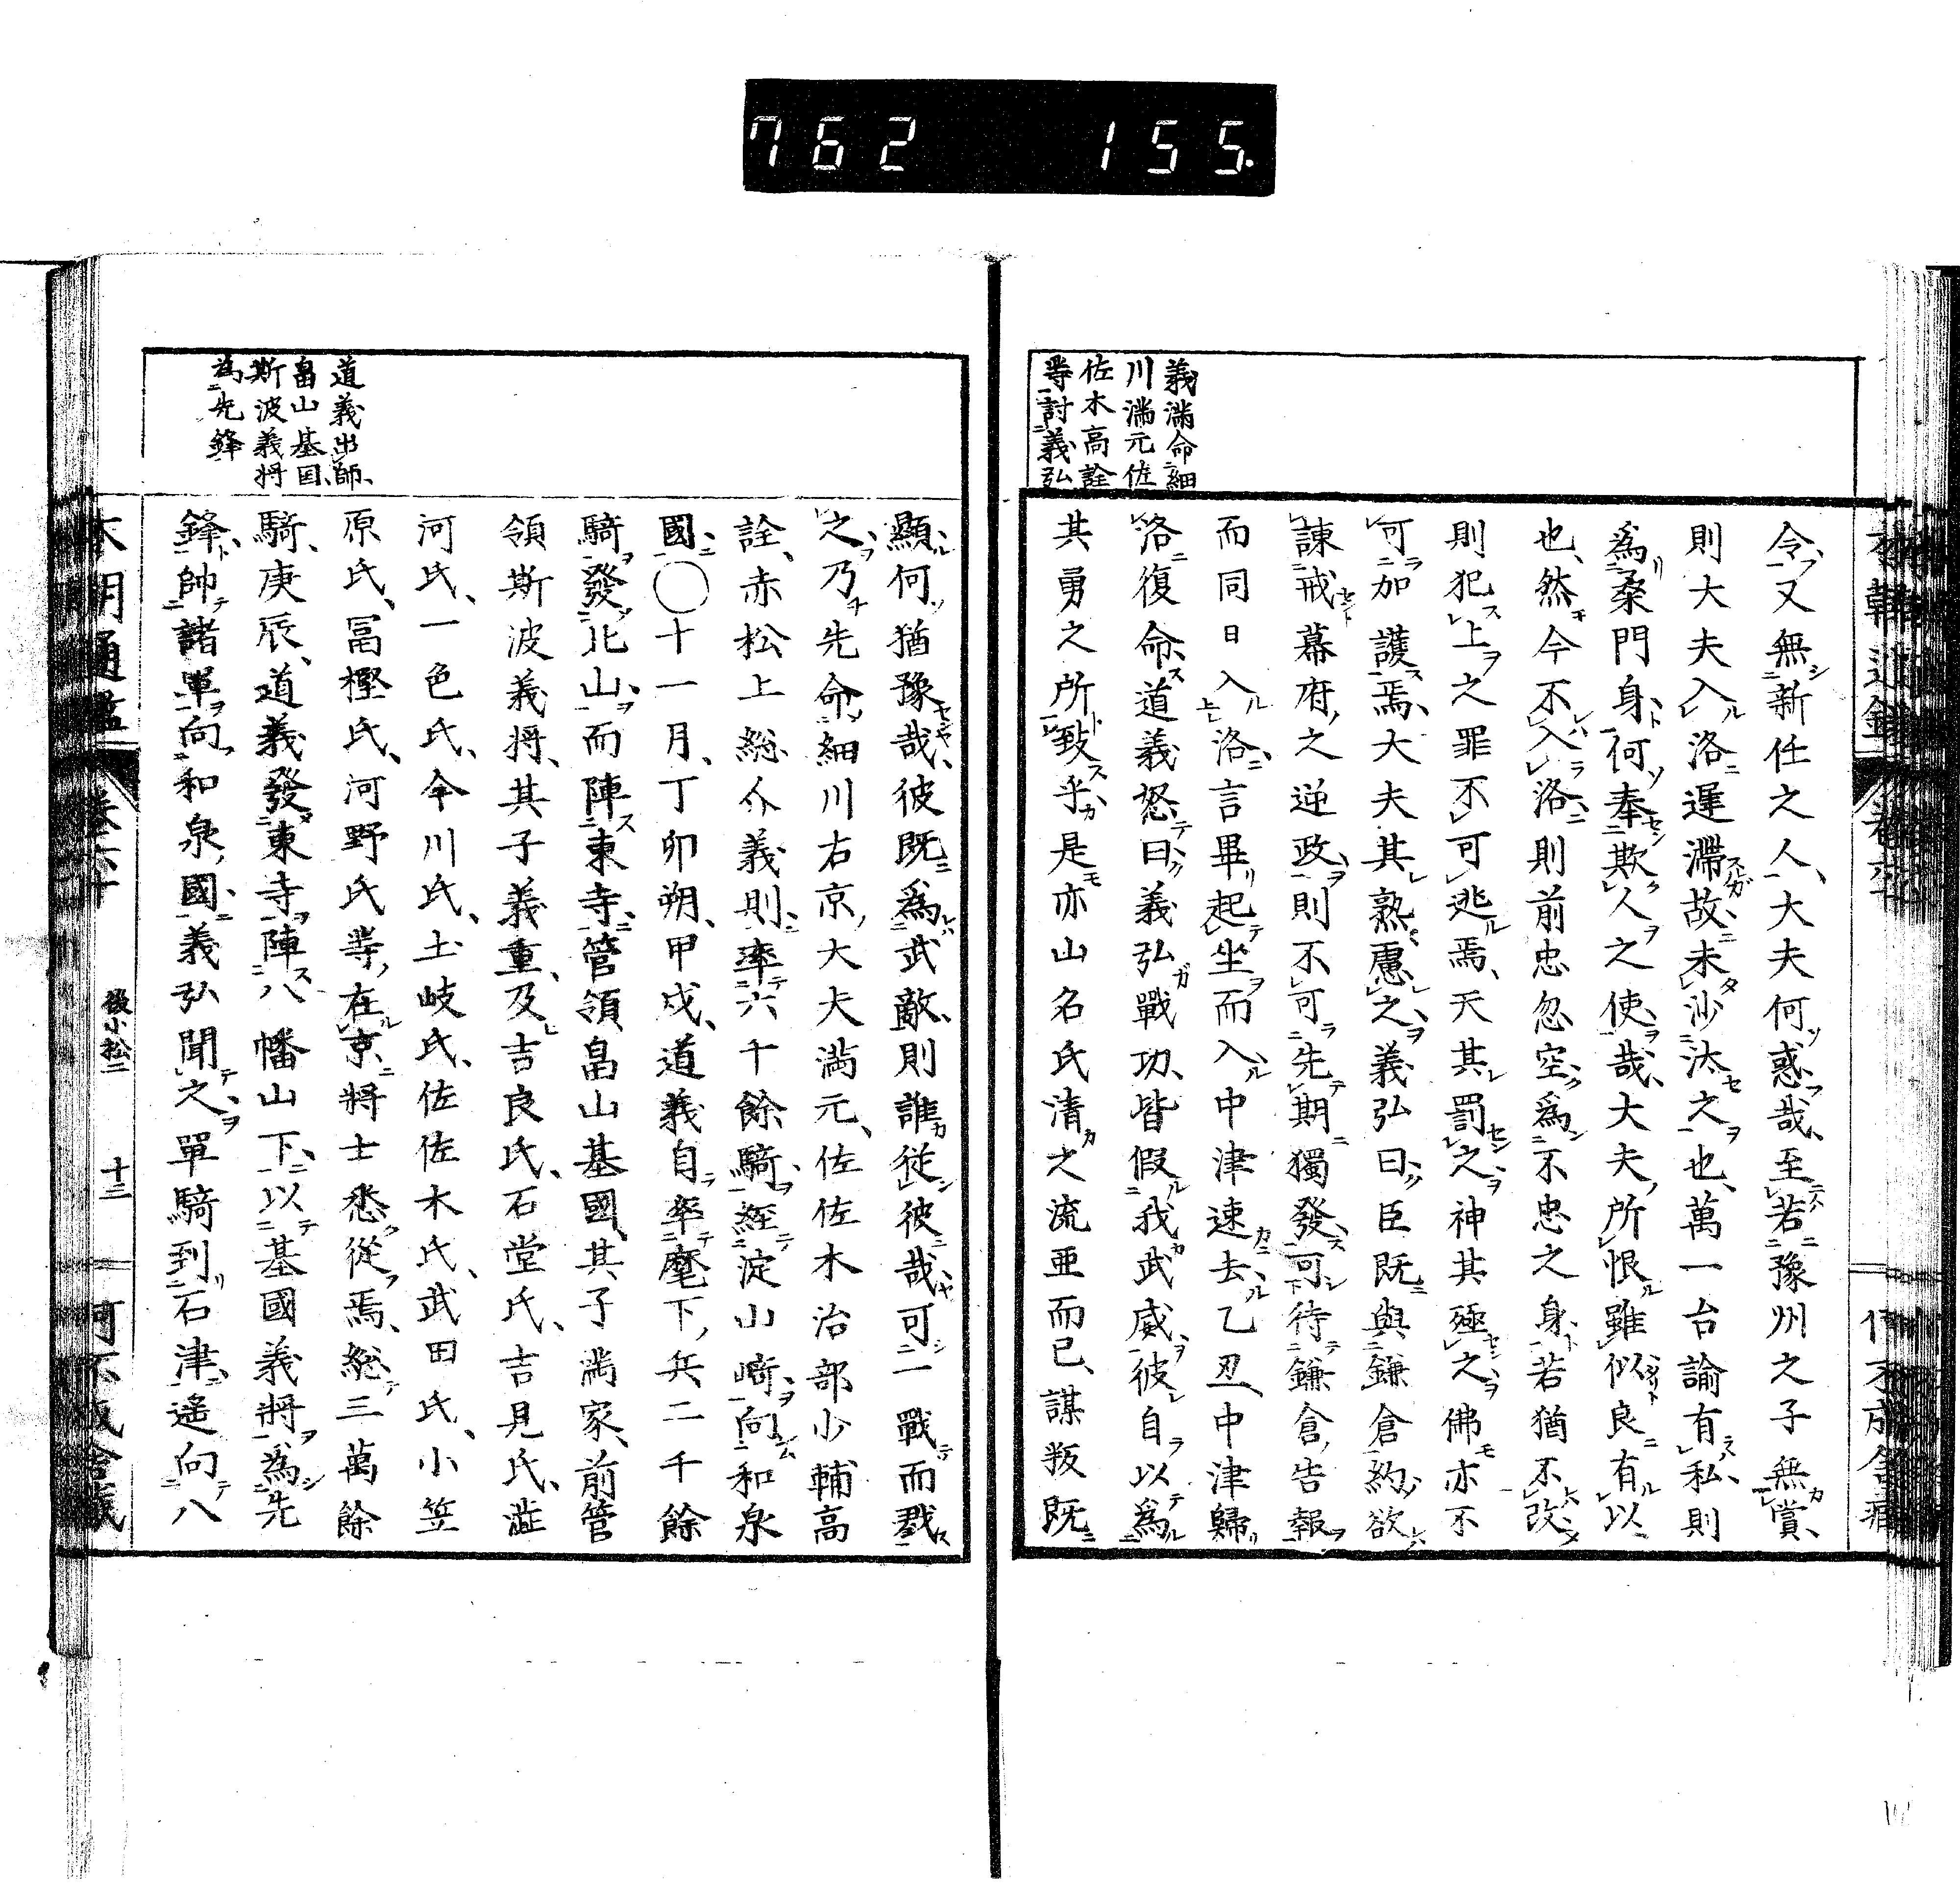 762 155.
義滿命細
川滿元佐
佐木高詮
等討義弘
令又無新任之人、大夫何惑哉、至若豫州之子無賞、
則大夫入洛遲滯故未沙汰之也、萬一台諭有私則
爲桑門身何奉欺人之使哉、大夫所恨雖似良有以
也、然今不入洛則前忠忽空爲不忠之身若猶不改
則犯上之罪不可逃焉、天其罰之神其殛之佛亦不
可加護焉、大夫其熟慮之義弘曰臣既與鎌倉約欲
諫戒幕府之逆政則不可先期獨發可待鎌倉告報
而同日入洛言畢起坐而入中津速去乙丑中津歸
洛復命道義怒曰義弘戰功皆假我武威彼自以爲
其勇之所致乎是亦山名氏清之流亜而已、謀叛既
道義出師、
畠山基国、
斯波義将
為先鋒
顯何猶豫哉、彼既爲武敵則誰從彼哉可一戰而戮
之乃先命細川右京大夫滿元、佐佐木治部少輔高
詮、赤松上総介義則率六千餘騎經淀山崎向和泉
國〇十一月、丁卯朔、甲戌、道義自率麾下兵二千餘
騎發北山而陣東寺管領畠山基國、其子満家、前管
領斯波義将、其子義重、及吉良氏、石堂氏、吉見氏、澁
河氏、一色氏、今川氏、土岐氏、佐佐木氏、武田氏、小笠
原氏、冨樫氏、河野氏等在京將士悉從焉、総三萬餘
騎、庚辰、道義發東寺陣八幡山下以基國義將為先
鋒帥諸軍向和泉國義弘聞之單騎到石津遙向八
本朝通鑑 卷六十 後小松二 十二